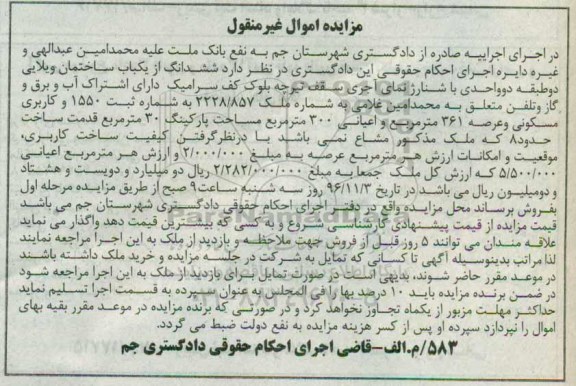 مزایده اموال غیرمنقول
در اجرای اجراییه صادره از دادگستری شهرستان جم به نفع بانک ملت علیه محمدامین عبدالهی و
غیره دایره اجرای احکام حقوقی این دادگستری در نظر دارد ششدانگ از یکباب ساختمان ویلایی
دوطبقه دوواحدی با شنارژ نمای آجری سقف تیرچه بلوک کف سرامیک دارای اشتراک آب و برق و
گاز وتلفن متعلق به محمدامین غلامی به شماره ملک ۲۲۲۸/۸۵۷ به شماره ثبت ۱۵۵۰ و کاربری
مسکونی وعرصه ۳۶۱ مترمربع و اعیانی ۳۰۰ مترمربع مساحت پارکینگ ۳۰ مترمربع قدمت ساخت
حدود۸ که ملک مذکور مشاع نمی باشد با درنظرگرفتن کیفیت ساخت کاربری،
موقعیت و امکانات ارزش هر مترمربع عرصه به مبلغ ۲/۰۰۰/۰۰۰ و ارزش هر مترمربع اعیانی
۵/۵۰۰/۰۰۰ که ارزش کل ملک جمعا به مبلغ ۲/۲۸۲/۰۰۰/۰۰۰ ریال دو میلیارد و دویست و هشتاد
و دومیلیون ریال می باشد در تاریخ ۹۶/۱۱/۳ روز سه شنبه ساعت۹ صبح از طریق مزایده مرحله اول
بفروش برساند محل مزایده واقع در دفتر اجرای احکام حقوقی دادگستری شهرستان جم می باشد
قیمت مزایده از قیمت پیشنهادی کارشناسی شروع و به کسی که بیشترین قیمت دهد واگذار می نماید
علاقه مندان می توانند ۵ روز قبل از فروش جهت ملاحظه و بازدید از ملک به این اجرا مراجعه نمایند
لذا مراتب بدینوسیله آگهی تا کسانی که تمایل به شرکت در جلسه مزایده و خرید ملک داشته باشند
در موعد مقرر حاضر شوند، بدیهی است در صورت تمایل برای بازدید از ملک به این اجرا مراجعه شود
در ضمن برنده مزایده باید ۱۰ درصد بها را فی المجلس به عنوان سپرده به قسمت اجرا تسلیم نماید
حداکثر مهلت مزبور از یکماه تجاوز نخواهد کرد و در صورتی که برنده مزایده در موعد مقرر بقیه بهای
اموال را نپردازد سپرده او پس از کسر هزینه مزایده به نفع دولت ضبط می گردد.
۵۸۳/م.الف-قاضی اجرای احکام حقوقی دادگستری جم